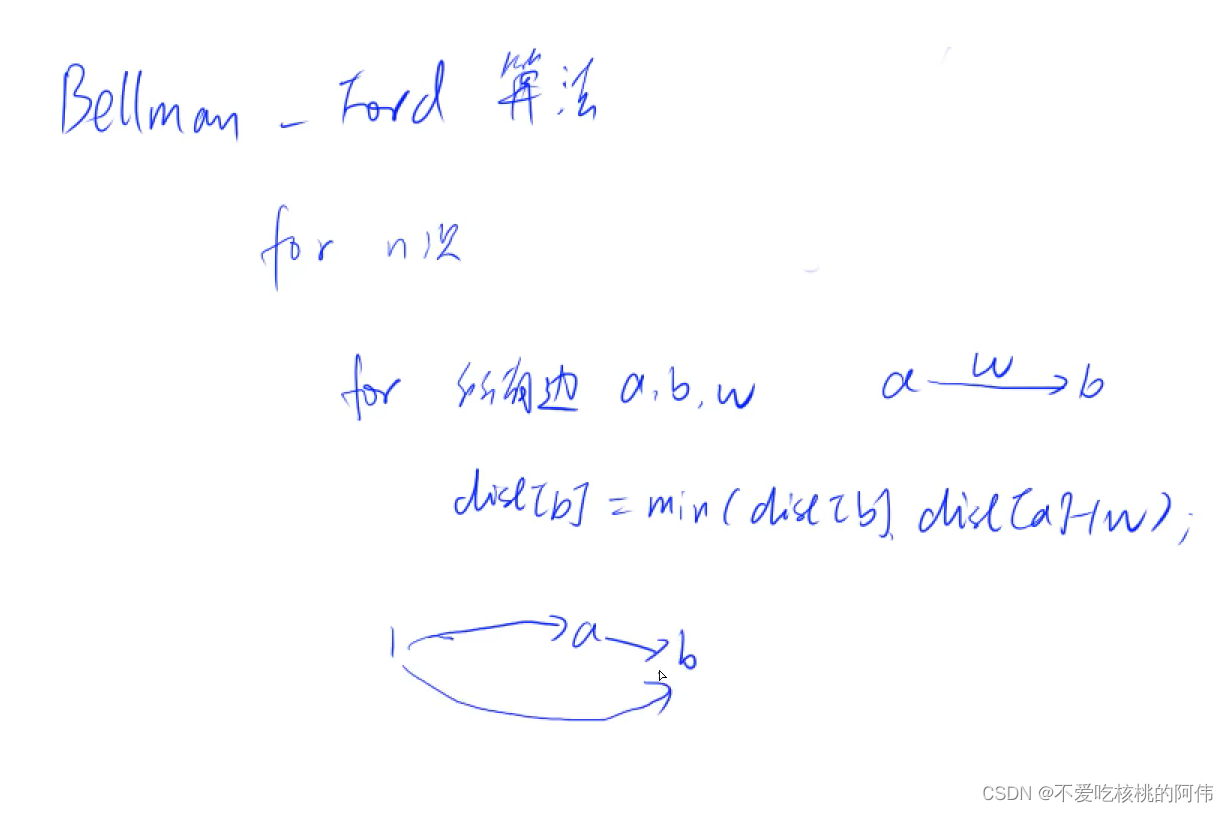 Bellman - Ford 算法
for n次
for 所有边 a,b,w a w b
dist[b] = min(dist[b], dist[a]+w);
1 a b
CSDN @不爱吃核桃的阿伟